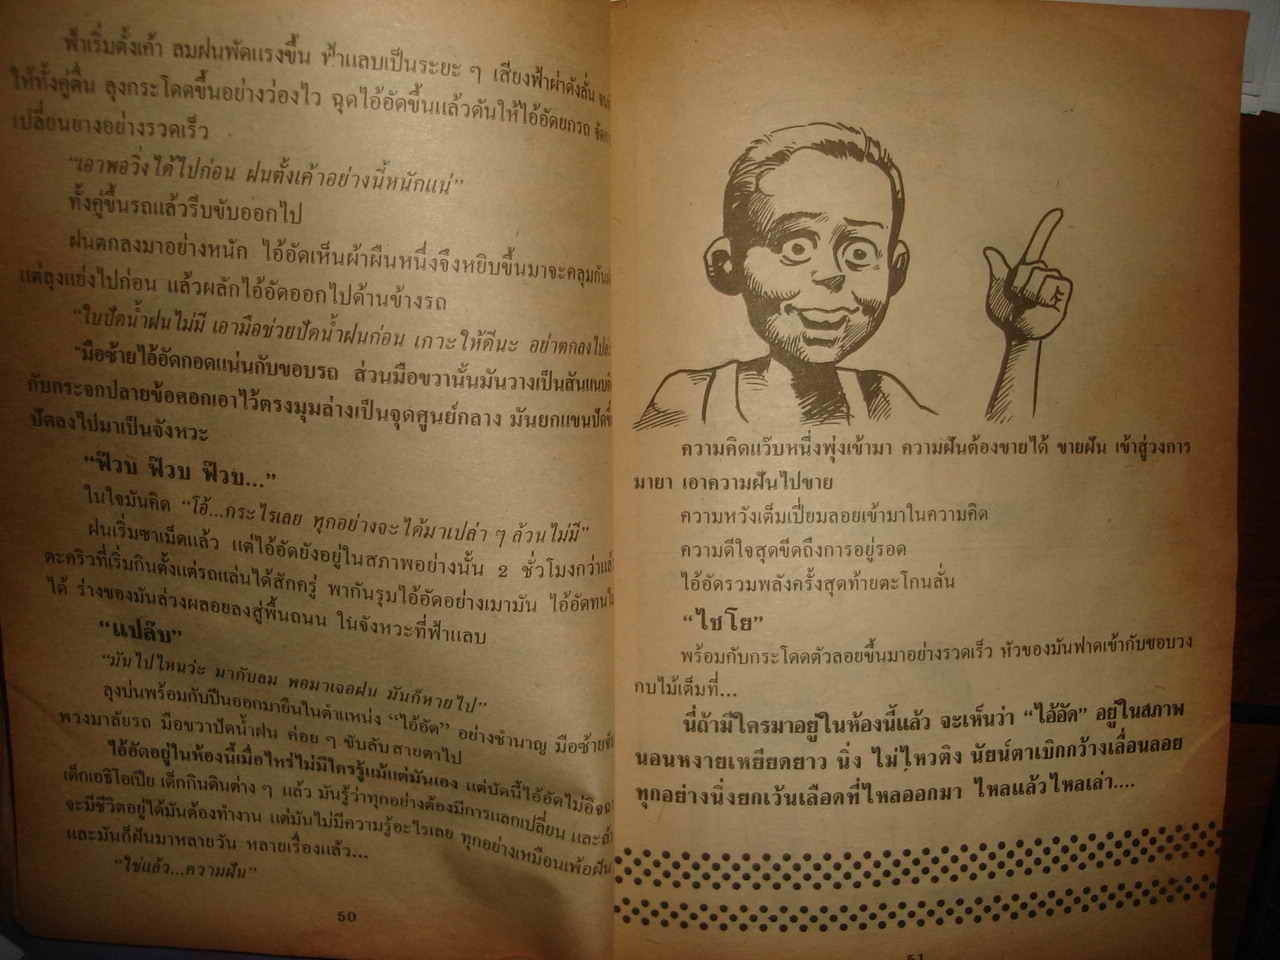 ฟ้าเริ่มตั้งเค้า ลมฝนพัดแรงขึ้น ฟ้าแลบเป็นระยะ ๆ เสียงฟ้าผ่าดังลั่น
ให้ทั้งคู่ตื่น ลุงกระโดดขึ้นอย่างว่องไว ฉุดไอ้อัดขึ้นแล้วดันให้ไอ้อัดยกรถ
เปลี่ยนยางอย่างรวดเร็ว
“เอาพอวิ่งได้ไปก่อน ฝนตั้งเค้าอย่างนี้หนักแน่”
ทั้งคู่ขึ้นรถแล้วรีบขับออกไป
ฝนตกลงมาอย่างหนัก ไอ้อัดเห็นผ้าผืนหนึ่งจึงหยิบขึ้นมาจะคลุมกัน
แต่ลุงแย่งไปก่อน แล้วผลักไอ้อัดออกไปด้านข้างรถ
“ใบปัดน้ำฝนไม่มี เอามือช่วยปัดน้ำฝนก่อน เกาะให้ดีนะ อย่าตกลงไป
มือซ้ายไอ้อัดกอดแน่นกับขอบรถ ส่วนมือขวานั้นมันวางเป็นสันแนบ
กับกระจกปลายข้อศอกเอาไว้ตรงมุมล่างเป็นจุดศูนย์กลาง มันยกแขนปัด
ปัดลงไปมาเป็นจังหวะ
“ฟ๊วบ ฟ๊วบ ฟ๊วบ...”
ในใจมันคิด “โอ้...กระไรเลย ทุกอย่างจะได้มาเปล่า ๆ ล้วนไม่มี”
ฝนเริ่มซาเม็ดแล้ว แต่ไอ้อัดยังอยู่ในสภาพอย่างนั้น 2 ชั่วโมงกว่า
ตะคริวที่เริ่มกินตั้งแต่รถแล่นได้สักครู่ พากันรุมไอ้อัดอย่างเมามัน ไอ้อัดทน
ได้ ร่างของมันล่วงผลอยลงสู่พื้นถนน ในจังหวะที่ฟ้าแลบ
“แปล๊บ”
“มันไปไหนว่ะ มากับลม พอมาเจอฝน มันก็หายไป”
ลุงบ่นพร้อมกับปีนออกมายืนในตำแหน่ง “ไอ้อัด” อย่างชำนาญ มือซ้าย
พวงมาลัยรถ มือขวาปัดน้ำฝน ค่อย ๆ ขับลับสายตาไป
ไอ้อัดอยู่ในห้องนี้เมื่อไหร่ไม่มีใครรู้แม้แต่มันเอง แต่บัดนี้ไอ้อัดไม่
เด็กเอธิโอเปีย เด็กกินดินต่าง ๆ แล้ว มันรู้ว่าทุกอย่างต้องมีการแลกเปลี่ยน และ
จะมีชีวิตอยู่ได้มันต้องทำงาน แต่มันไม่มีความรู้อะไรเลย ทุกอย่างเหมือนเพ้อฝัน
และมันก็ฝันมาหลายวัน หลายเรื่องแล้ว...
“ใช่แล้ว...ความฝัน”
50
ความคิดแว๊บหนึ่งพุ่งเข้ามา ความฝันต้องขายได้ ขายฝัน เข้าสู่วงการ
มายา เอาความฝันไปขาย
ความหวังเต็มเปี่ยมลอยเข้ามาในความคิด
ความดีใจสุดขีดถึงการอยู่รอด
ไอ้อัดรวมพลังครั้งสุดท้ายตะโกนลั่น
“ไชโย”
พร้อมกับกระโดดตัวลอยขึ้นมาอย่างรวดเร็ว หัวของมันฟาดเข้ากับขอบวง
กบไม้เต็มที่...
นี่ถ้ามีใครมาอยู่ในห้องนี้แล้ว จะเห็นว่า “ไอ้อัด” อยู่ในสภาพ
นอนหงายเหยียดยาว นิ่ง ไม่ไหวติง นัยน์ตาเบิกกว้างเลื่อนลอย
ทุกอย่างนิ่งยกเว้นเลือดที่ไหลออกมา ไหลแล้วไหลเล่า....
51